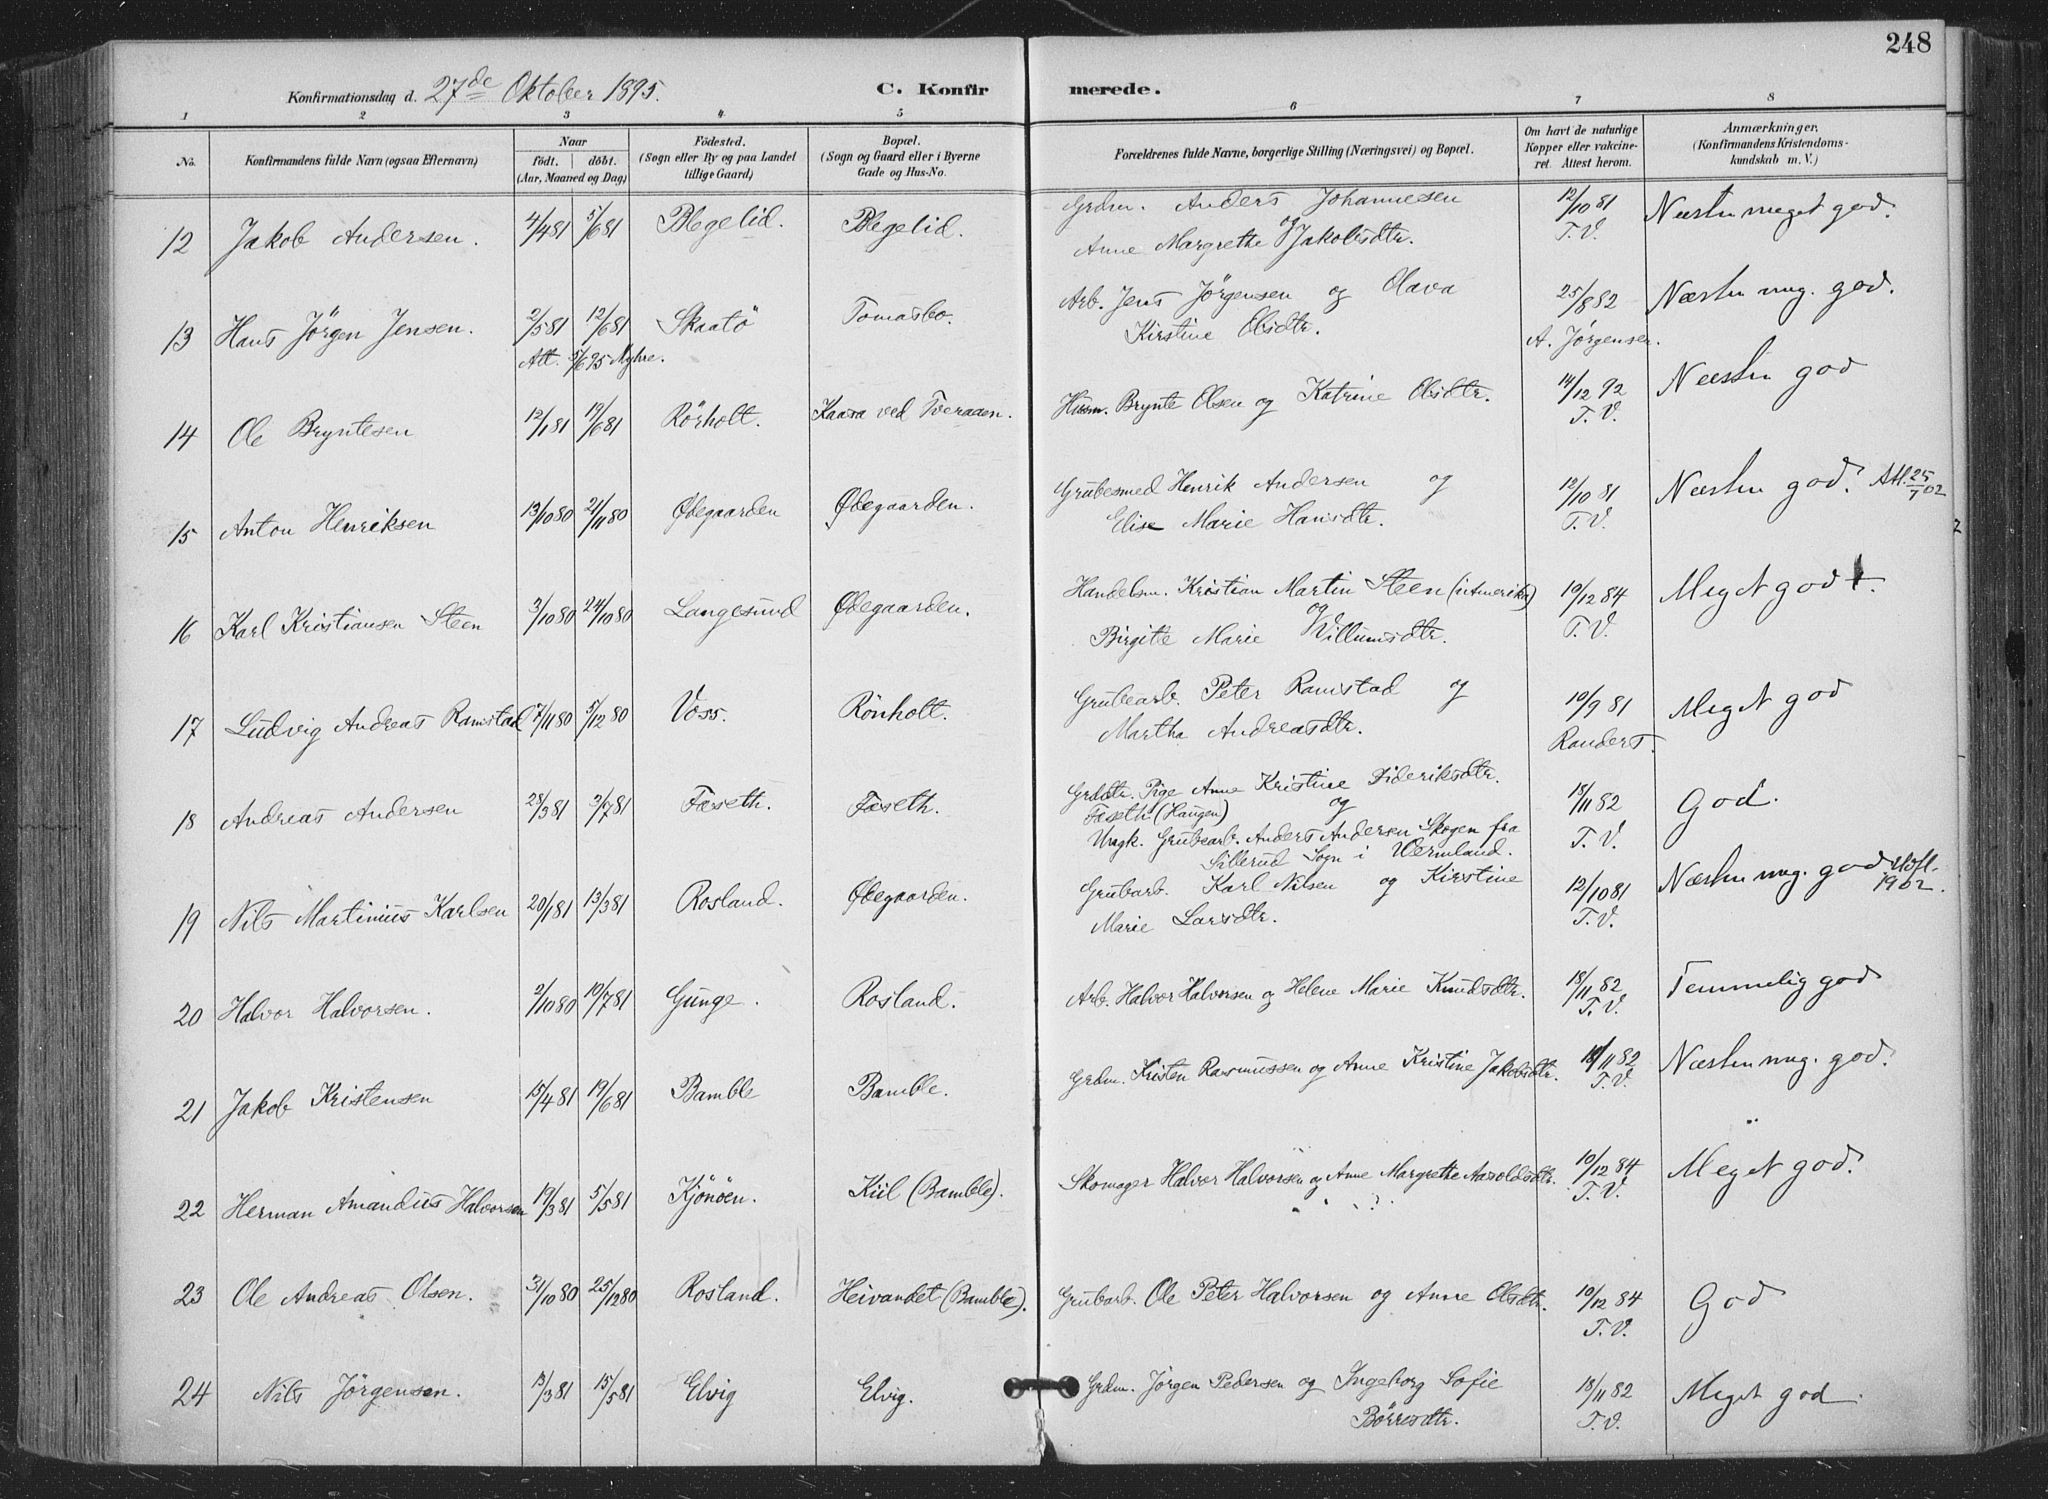 248
Konfirmationsdag d. 27de Oktober 1895. C. Konfir merede.
1 2 3 4 5 6 7 8
No. Konfirmandens fulde Navn (ogsaa Efternavn) Naar født, døbt. (Aar, Maaned og Dag) Fødested. (Sogn eller By og paa Landet tillige Gaard) Bopæl. (Sogn og Gaard eller i Byerne Gade og Hus-No. Forældrenes fulde Navne, borgerlige Stilling (Næringsvei) og Bopæl. Om havt de naturlige Kopper eller vakcineret. Attest herom. Anmærkninger. (Konfirmandens Kristendomskundskab m. V.)
12 Jakob Andersen. 4/4 81 5/6 81 Blegelid. Blegelid. Grdm. Anders Johannesen og 12/10 81 Næsten meget god.
Anne Margrethe Jakobsdtr. T. V.
13 Hans Jörgen Jensen. 2/5 81 12/6 81 Skaatö Tomasbo. Arb. Jens Jörgensen og Olava 25/8 82 Næsten meg. god.
Att. 5/6 95 Myhre. Kirstine Olsdtr. A. Jørgensen.
14 Ole Bryntesen 12/1 81 19/6 81 Rörholt. Kaasa ved Tveraaen. Husm. Brynte Olsen og Katrine Olsdtr. 14/12 92 Næsten god
T. V.
15 Anton Henriksen 13/10 80 21/11 80 Ødegaarden Ødegaarden. Grubesmed Henrik Andersen og 12/10 81 Næsten god. Att. 25/7 02
Elise Marie Hansdtr. T. V.
16 Karl Kristiansen Steen 3/10 80 24/10 80 Langesund Ødegaarden. Handelsm. Kristian Martin Steen (i Amerika) og 10/12 84 Meget god.
Birgitte Marie Villumsdtr. T. V.
17 Ludvig Andreas Ramstad 7/11 80 5/12 80 Voss. Rönholt. Grubearb. Peter Ramstad og 10/9 81 Meget god
Martha Andreasdtr. Randers.
18 Andreas Andersen 28/3 81 3/7 81 Fæseth. Fæseth. Grddtr. Pige Anne Kristine Dideriksdtr. 18/11 82 God.
Fæseth (Haugen) og T. V.
Ungk. Grubearb. Anders Andersen Skogen fra
Sillerud Sogn i Wermland.
19 Nils Martinius Karlsen 20/1 81 13/3 81 Rosland. Ødegaarden. Grubarb. Karl Nilsen og Kirstine 12/10 81 Næsten meg. god 1902.
Marie Larsdtr. T. V.
20 Halvor Halvorsen. 2/10 80 10/7 81 Gunge. Rosland. Arb. Halvor Halvorsen og Helene Marie Knudsdtr. 18/11 82 Temmelig god
T. V.
21 Jakob Kristensen 15/4 81 19/6 81 Bamble Bamble. Grdm. Kristen Rasmussen og Anne Kristine Jakobsdtr. 18/11 82 Næsten meg. god.
T. V.
22 Herman Amandus Halvorsen 19/3 81 5/5 81 Kjönöen. Kiil (Bamble). Skomager Halvor Halvorsen og Anne Margrethe Aasoldsdtr. 10/12 84 Meget god.
? T. V.
23 Ole Andreas Olsen. 31/10 80 25/12 80 Rosland. Heivandet (Bamble). Grubarb. Ole Peter Halvorsen og Anne Olsdtr. 10/12 84 God
T. V.
24 Nils Jörgensen. 13/3 81 15/5 81 Elvig Elvig. Grdm. Jörgen Pedersen og Ingeborg Sofie 18/11 82 Meget god.
Börresdtr. T. V.